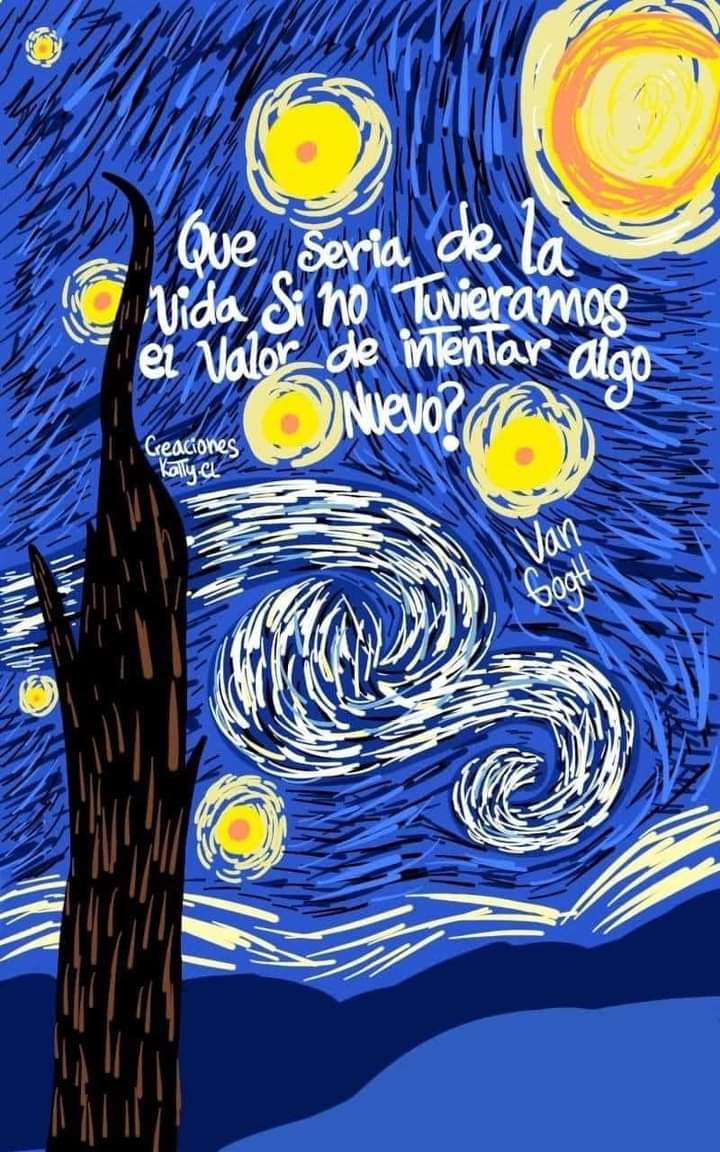 Que seria de la
Vida Si no Tuvieramos
el Valor de intentar algo
Nuevo?
Creaciones
Katty.cl
Van
Gogh